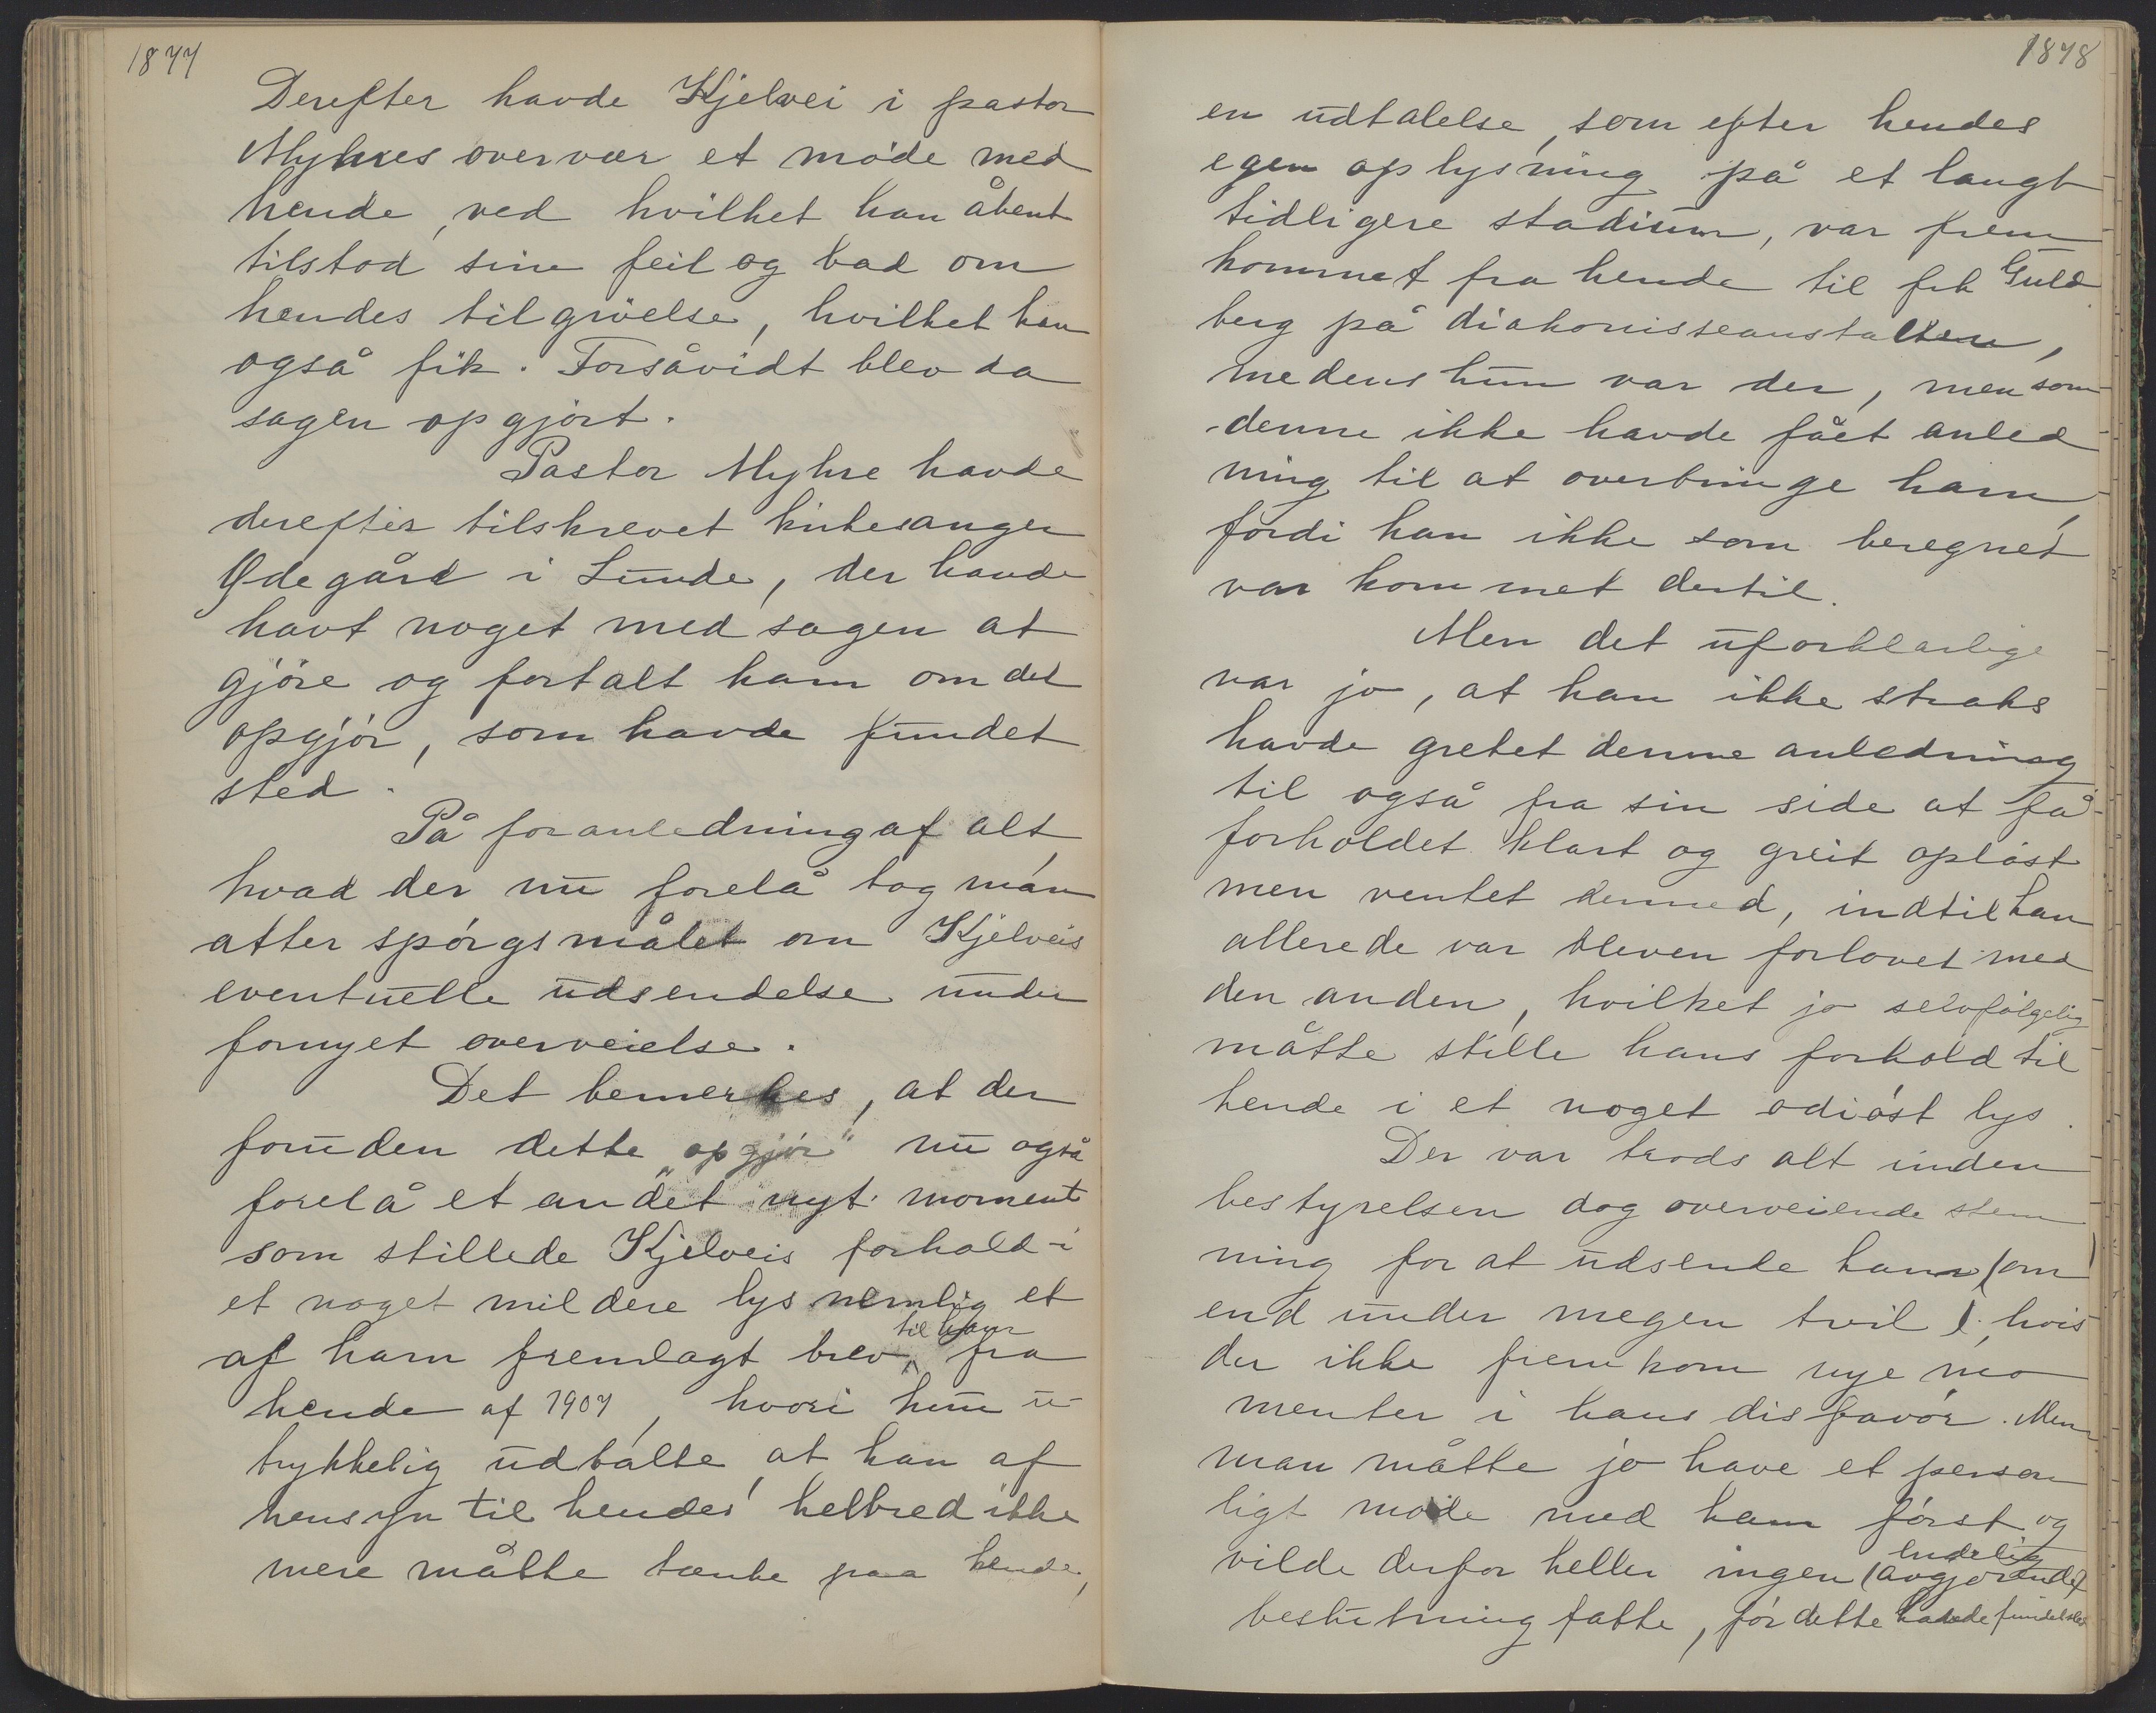 1877
Derefter havde Kjelvei i pastor
Myhres overvær et møde med
hende, ved hvilket han åbent
tilstod sine feil og bad om
hendes tilgivelse, hvilket han
også fik. Forsåvidt blev da
sagen opgjort.
Pastor Myhre havde
derefter tilskrevet kirkesanger
Ødegård i Lunde, der havde
havt noget med sagen at
gjøre og fortalt ham om det
opgjør, som havde fundet
sted.
På foranledning af alt,
hvad der nu forelå tog man
atter spørgsmålet om Kjelveis
eventuelle udsendelse under
fornyet overveielse.
Det bemerkes, at der
foruden dette „opgjør" nu også
forelå et andet nyt moment
som stillede Kjelveis forhold i
et noget mildere lys nemlig et
af ham fremlagt brev til ham fra
hende af 1907, hvori hun u-
trykkelig udtalte, at han af
hensyn til hendes helbred ikke
mere måtte tænke paa hende,
1878
en udtalelse, som efter hendes
egen oplysning på et langt
tidligere stadium, var frem
kommet fra hende til frk Guld
berg på diakonisseanstalten,
medens hun var der, men som
denne ikke havde fået anled
ning til at overbringe ham,
fordi han ikke som beregnet
var kommet dertil.
Men det uforklarlige
var jo, at han ikke straks
havde grebet denne anledning
til også fra sin side at få
forholdet klart og greit opløst
men ventet dermed, indtil han
allerede var bleven forlovet med
den anden, hvilket jo selvfølgelig
måtte stille hans forhold til
hende i et noget odiøst lys.
Der var trods alt inden
bestyrelsen dog overveiende stem
ning for at udsende ham (om
end under megen tvil), hvis
der ikke fremkom nye mo
menter i hans disfavør. Men
man måtte jo have et person
ligt møde med ham først og
vilde derfor heller ingen endelig (avgjørende)
beslutning fatte, før dette havde fundet sted